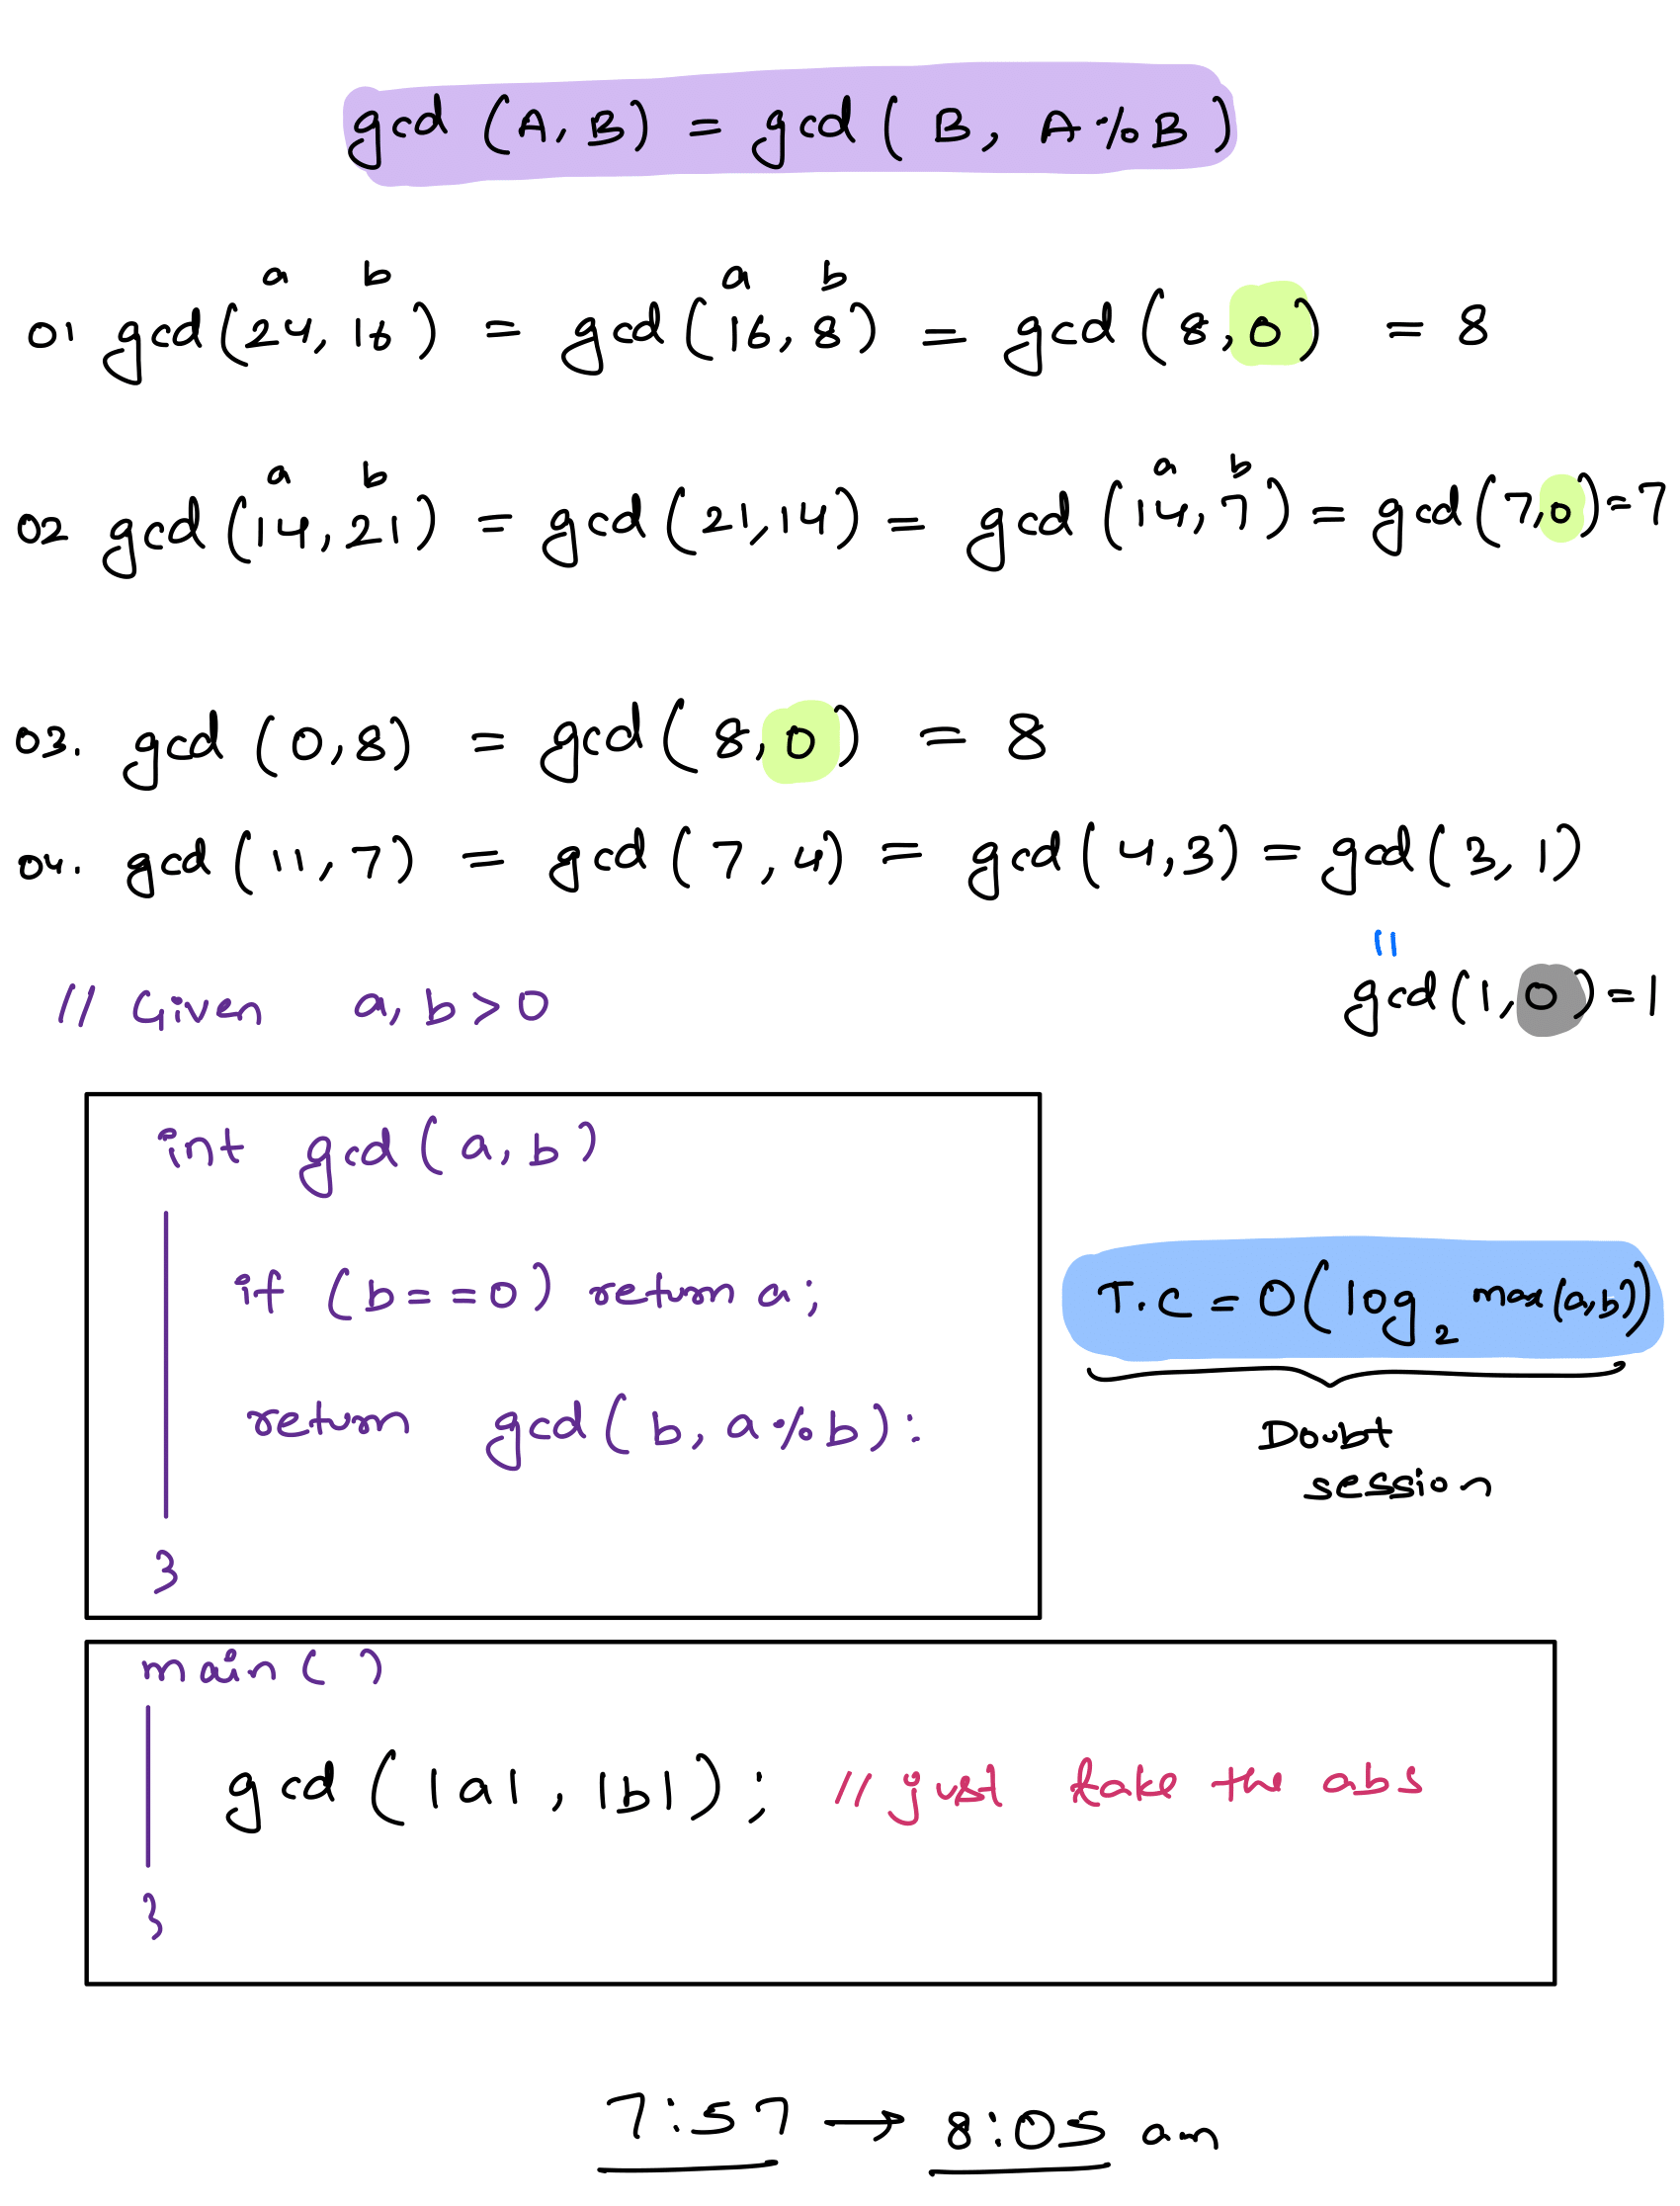 gcd (A, B) = gcd ( B, A % B )
a b a b
01 gcd(24, 16) = gcd(16, 8) = gcd(8, 0) = 8
a b a b
02 gcd(14, 21) = gcd(21, 14) = gcd(14, 7) = gcd(7, 0) = 7
03. gcd (0, 8) = gcd(8, 0) = 8
04. gcd (11, 7) = gcd(7, 4) = gcd(4, 3) = gcd(3, 1)
||
gcd(1, 0) = 1
// Given a, b > 0
int gcd(a, b)
if (b==0) return a;
return gcd(b, a % b):
}
T.C = O(log₂ max(a,b))
Doubt
session
main ( )
gcd (|a|, |b|); // just take the abs
}
7:57 → 8:05 am